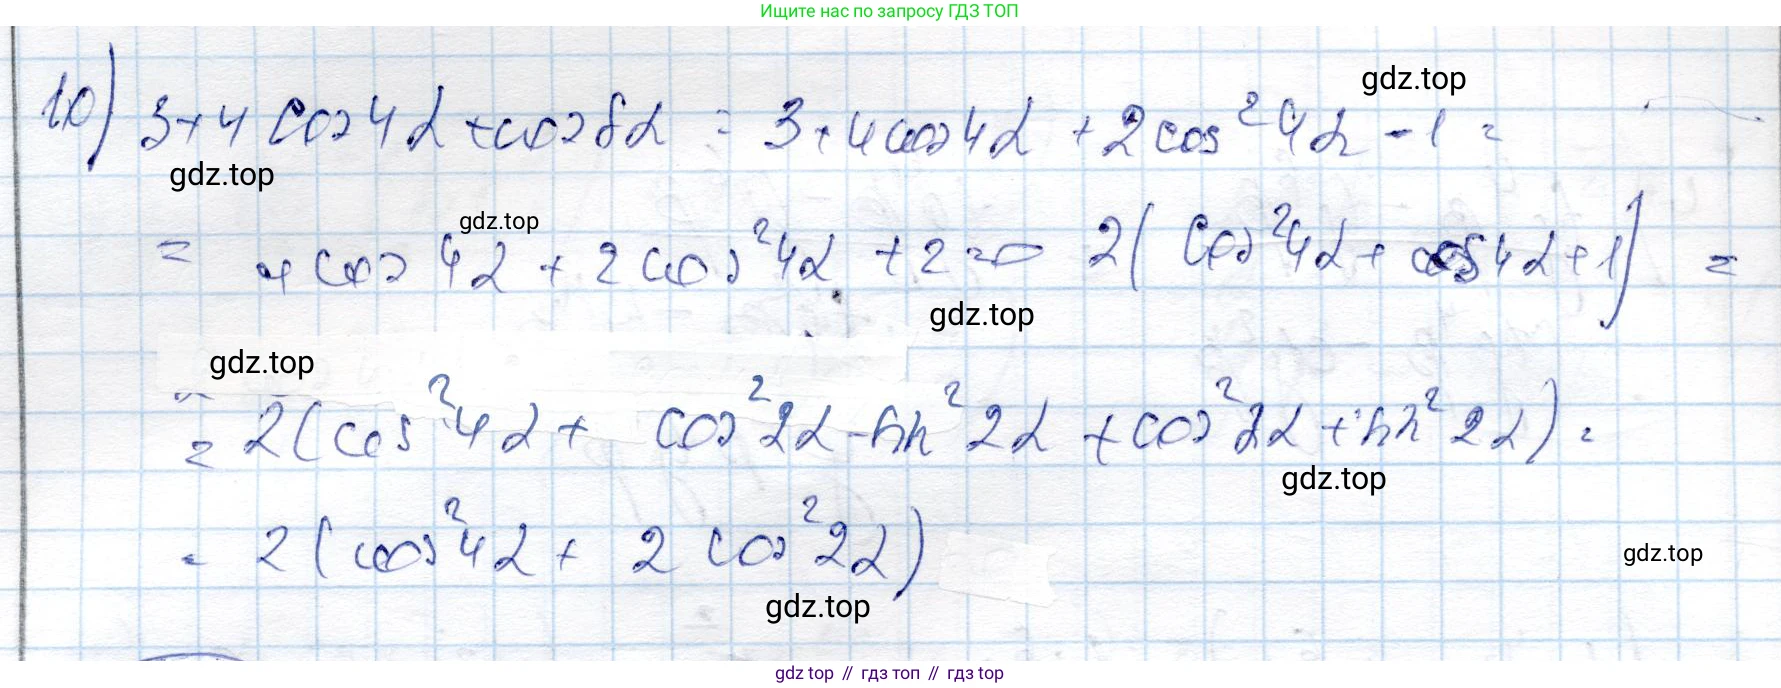 Ищите нас по запросу ГДЗ ТОП
gdz.top
10) 3+4 cos 4α + cos 8α = 3 + 4 cos 4α + 2 cos² 4α - 1 =
gdz.top
gdz.top
= 4 cos 4α + 2 cos² 4α + 2 = 2( cos² 4α + cos 4α + 1) =
gdz.top
gdz.top
= 2(cos² 4α + cos² 2α - sin² 2α + cos² 2α + sin² 2α) =
gdz.top
= 2(cos² 4α + 2 cos² 2α)
gdz.top
gdz.top
gdz.top // гдз топ // gdz.top